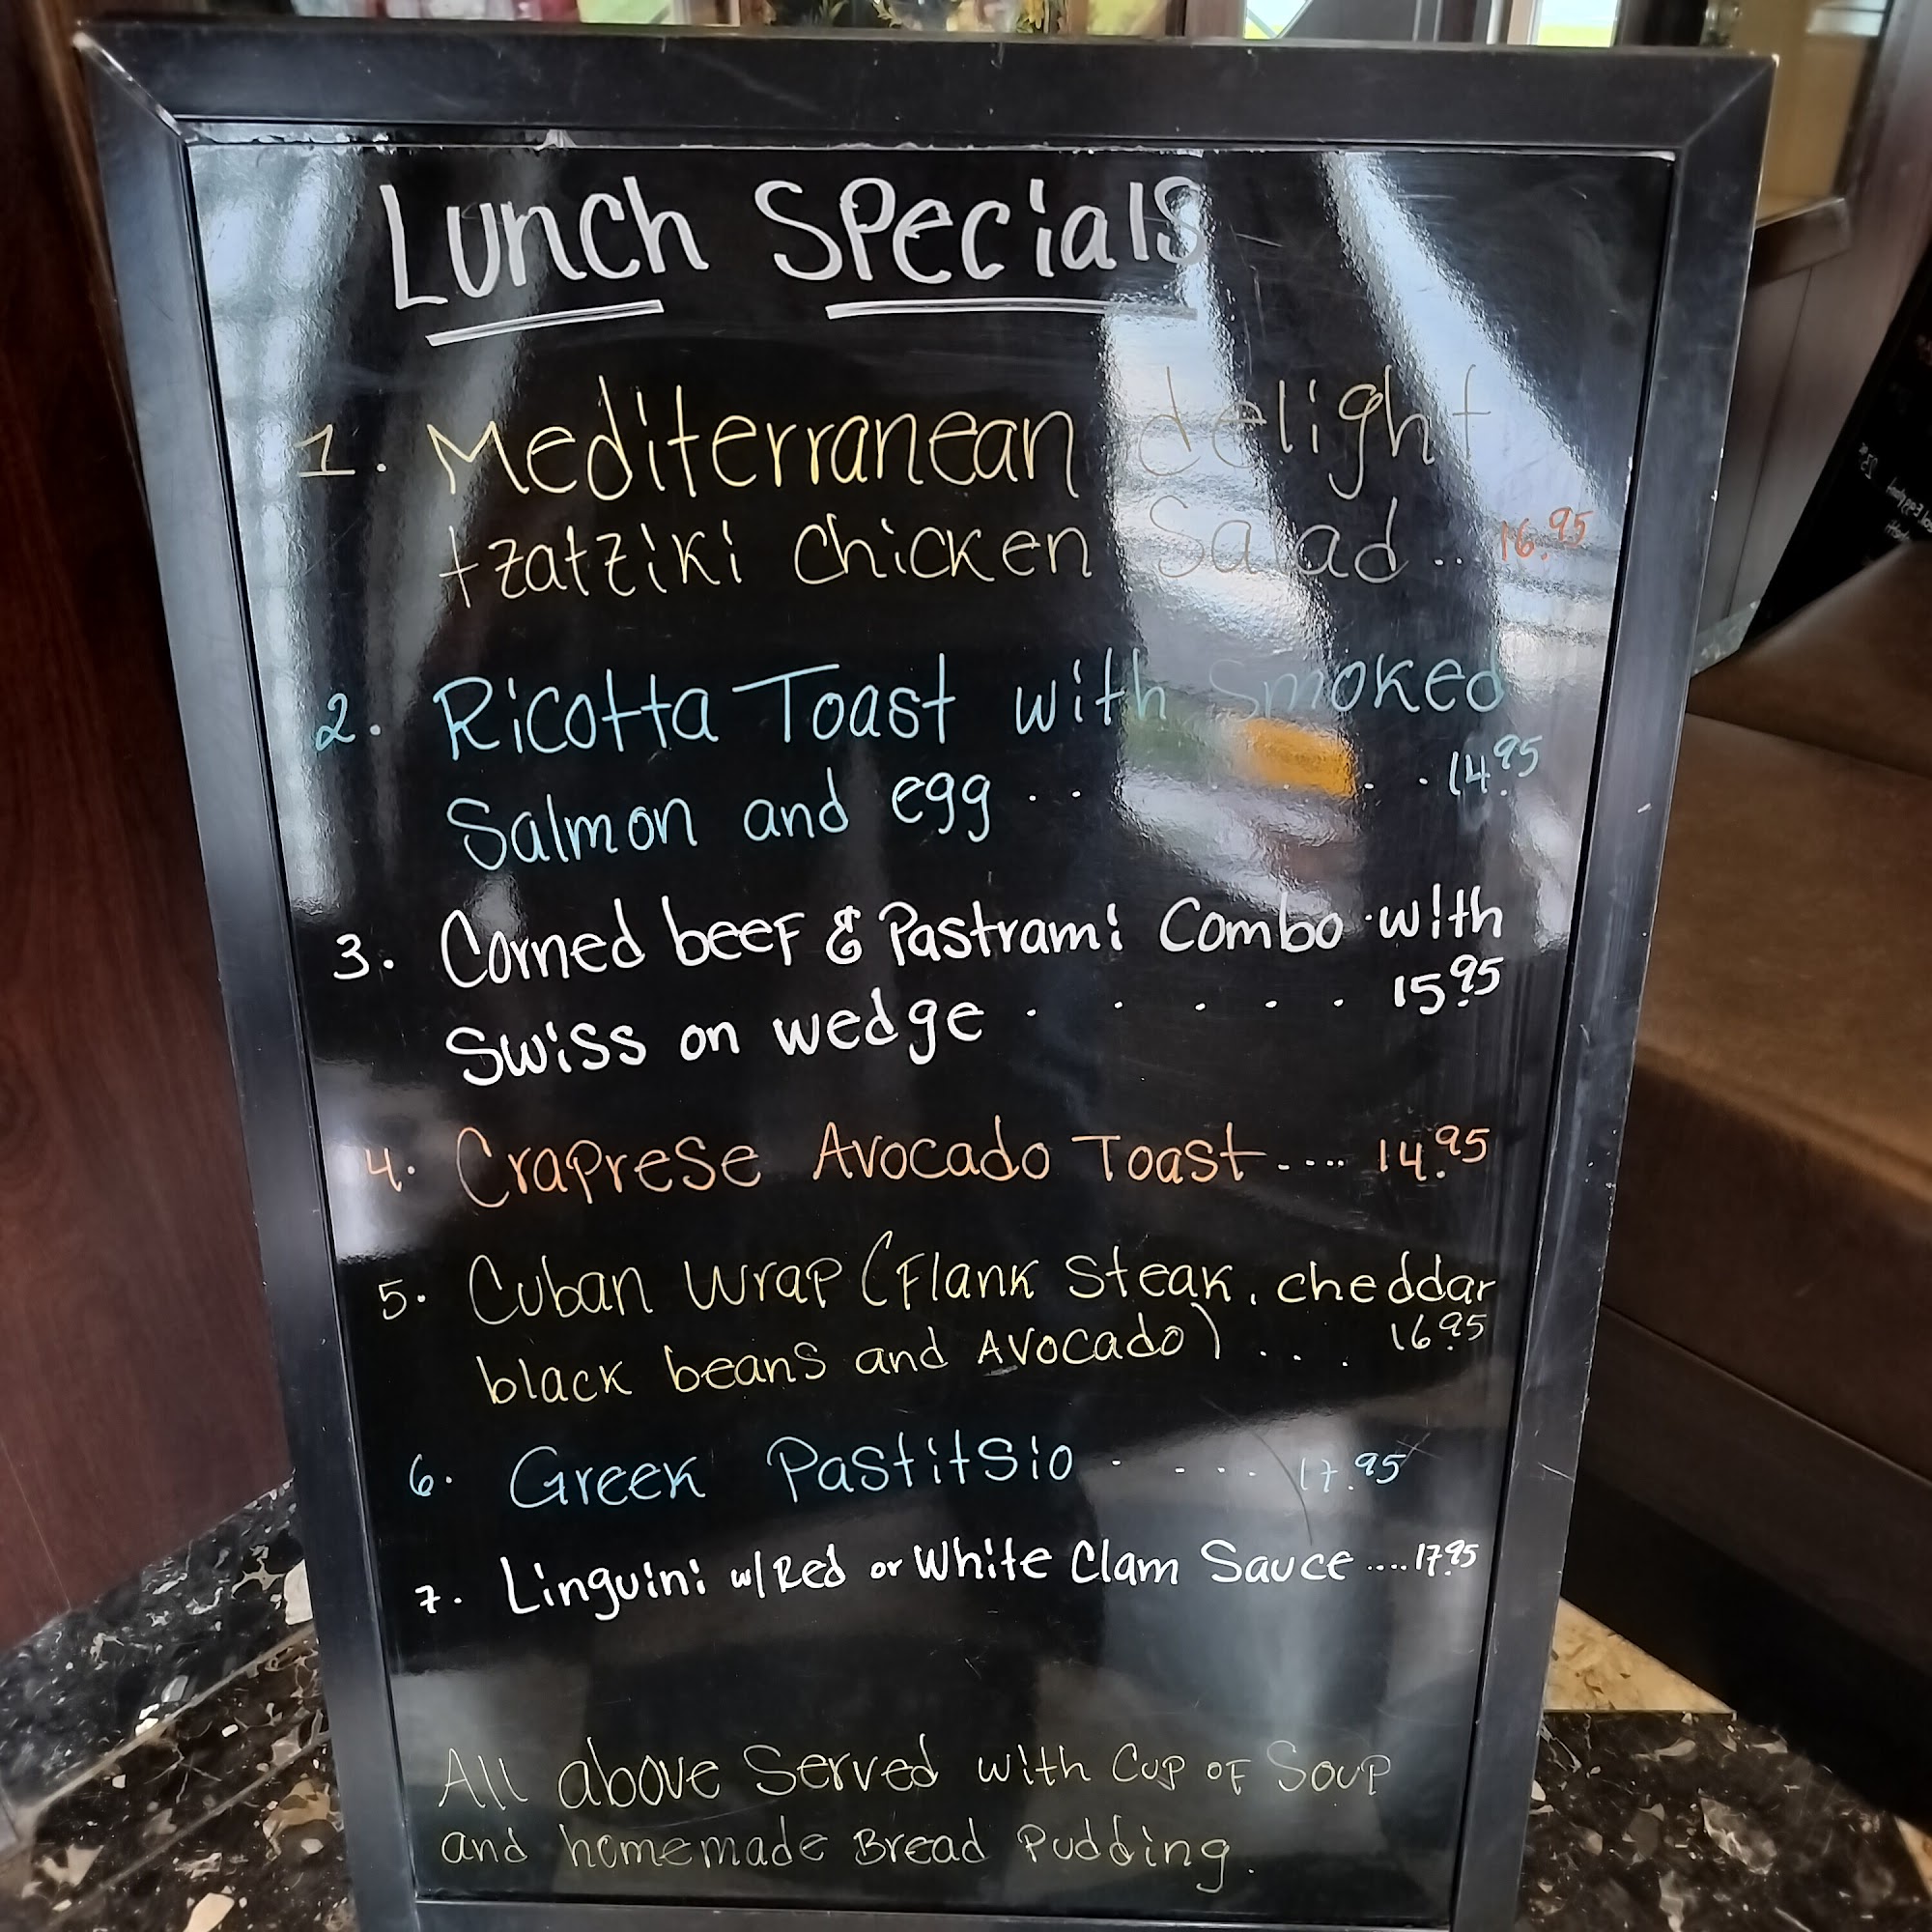 Lunch Specials
1. Mediterranean delight
tzatziki chicken Salad .. 16.95
2. Ricotta Toast with Smoked
Salmon and egg . . . . . . 14.95
3. Corned beef & Pastrami Combo with
Swiss on wedge . . . . . 15.95
4. Craprese Avocado Toast .... 14.95
5. Cuban Wrap (Flank Steak, cheddar
black beans and Avocado) . . . 16.95
6. Greek Pastitsio . . . . . 17.95
7. Linguini w/Red or White Clam Sauce .... 17.95
All above Served with Cup of Soup
and homemade Bread Pudding.